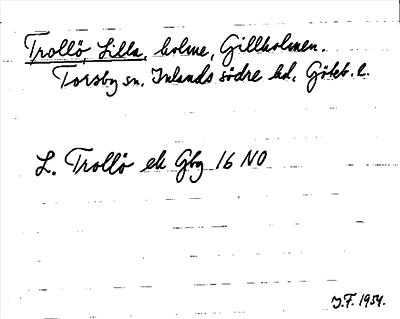 Trollö, Lilla, holme, Gillholmen.
Torsby sn. Inlands södre hd. Göteb. l.
L. Trollö ek Gbg 16 NO
J.F. 1954.